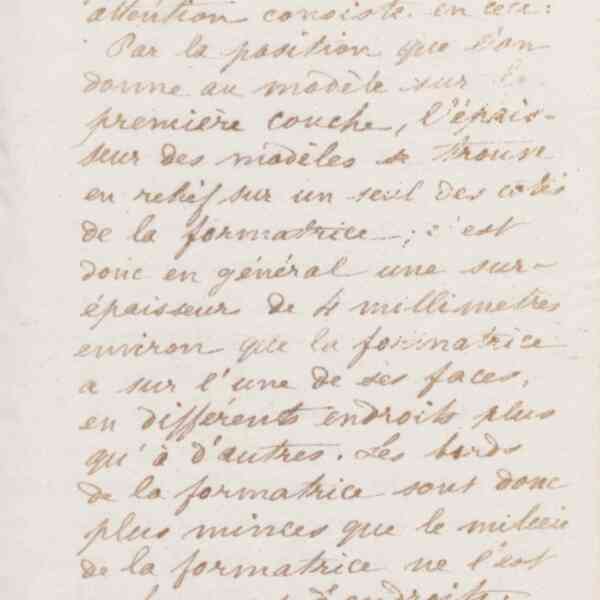 attention consiste en ceci:
Par la position que l'on
donne au modèle sur la
première couche, l'épais-
seur des modèles se trouve
en relief sur un seul des côtés
de la formatrice; c'est
donc en général une sur-
épaisseur de 4 millimètres
environ que la formatrice
a sur l'une de ses faces,
en différents endroits plus
qu'à d'autres. Les bords
de la formatrice sont donc
plus minces que le milieu
de la formatrice ne l'est
d'endroits